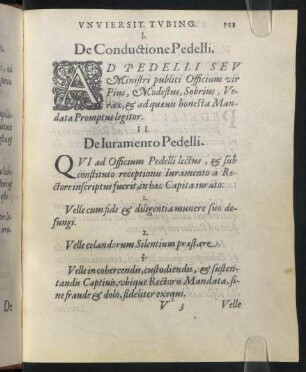 VNVIERSIT. TVBING.
I.
De Conductione Pedelli.
AD PEDELLI SEV
Ministri publici Officium vir
Pius, Modestus, Sobrius, Ve-
rax, & ad quæuis honesta Man-
data Promptus legitor.
II.
De Iuramento Pedelli.
QVI ad Officium Pedelli lectus, & sub
constituto receptionis Iuramento à Re-
ctore inscriptus fuerit, in hæc Capita iurato:
1.
Velle cum fide & diligentia munere suo de-
fungi.
2.
Velle celandorum Silentium præstare.
3.
Velle in cohercendis, custodiendis, & susten-
tandis Captiuis, vbique Rectoris Mandata, si-
ne fraude & dolo, fideliter exequi.
V 3 Velle
De